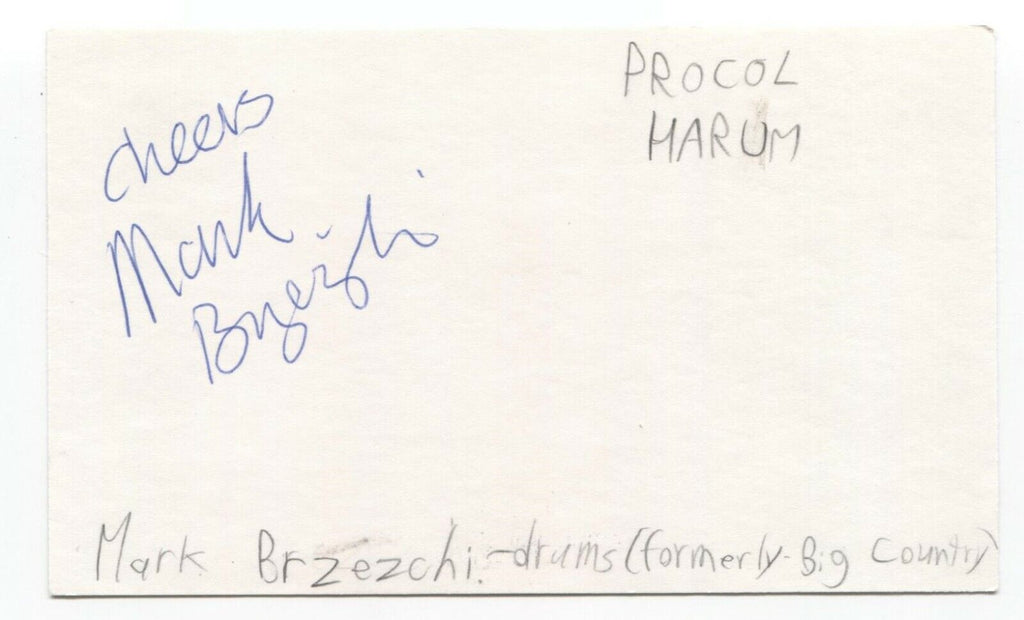 PROCOL
HARUM
cheers
Mark
Brzezchi
Mark Brzezchi.-drums (formerly-Big Country)